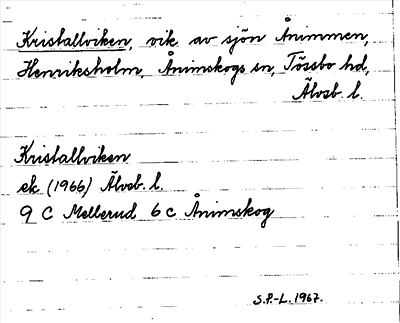 Kristallviken, vik av sjön Ånimmen,
Henriksholm, Ånimskogs sn, Tössbo hd,
Älvsb. l.
Kristallviken
ek (1966) Älvsb. l.
9 C Mellerud 6 c Ånimskog
S.P.-L. 1967.